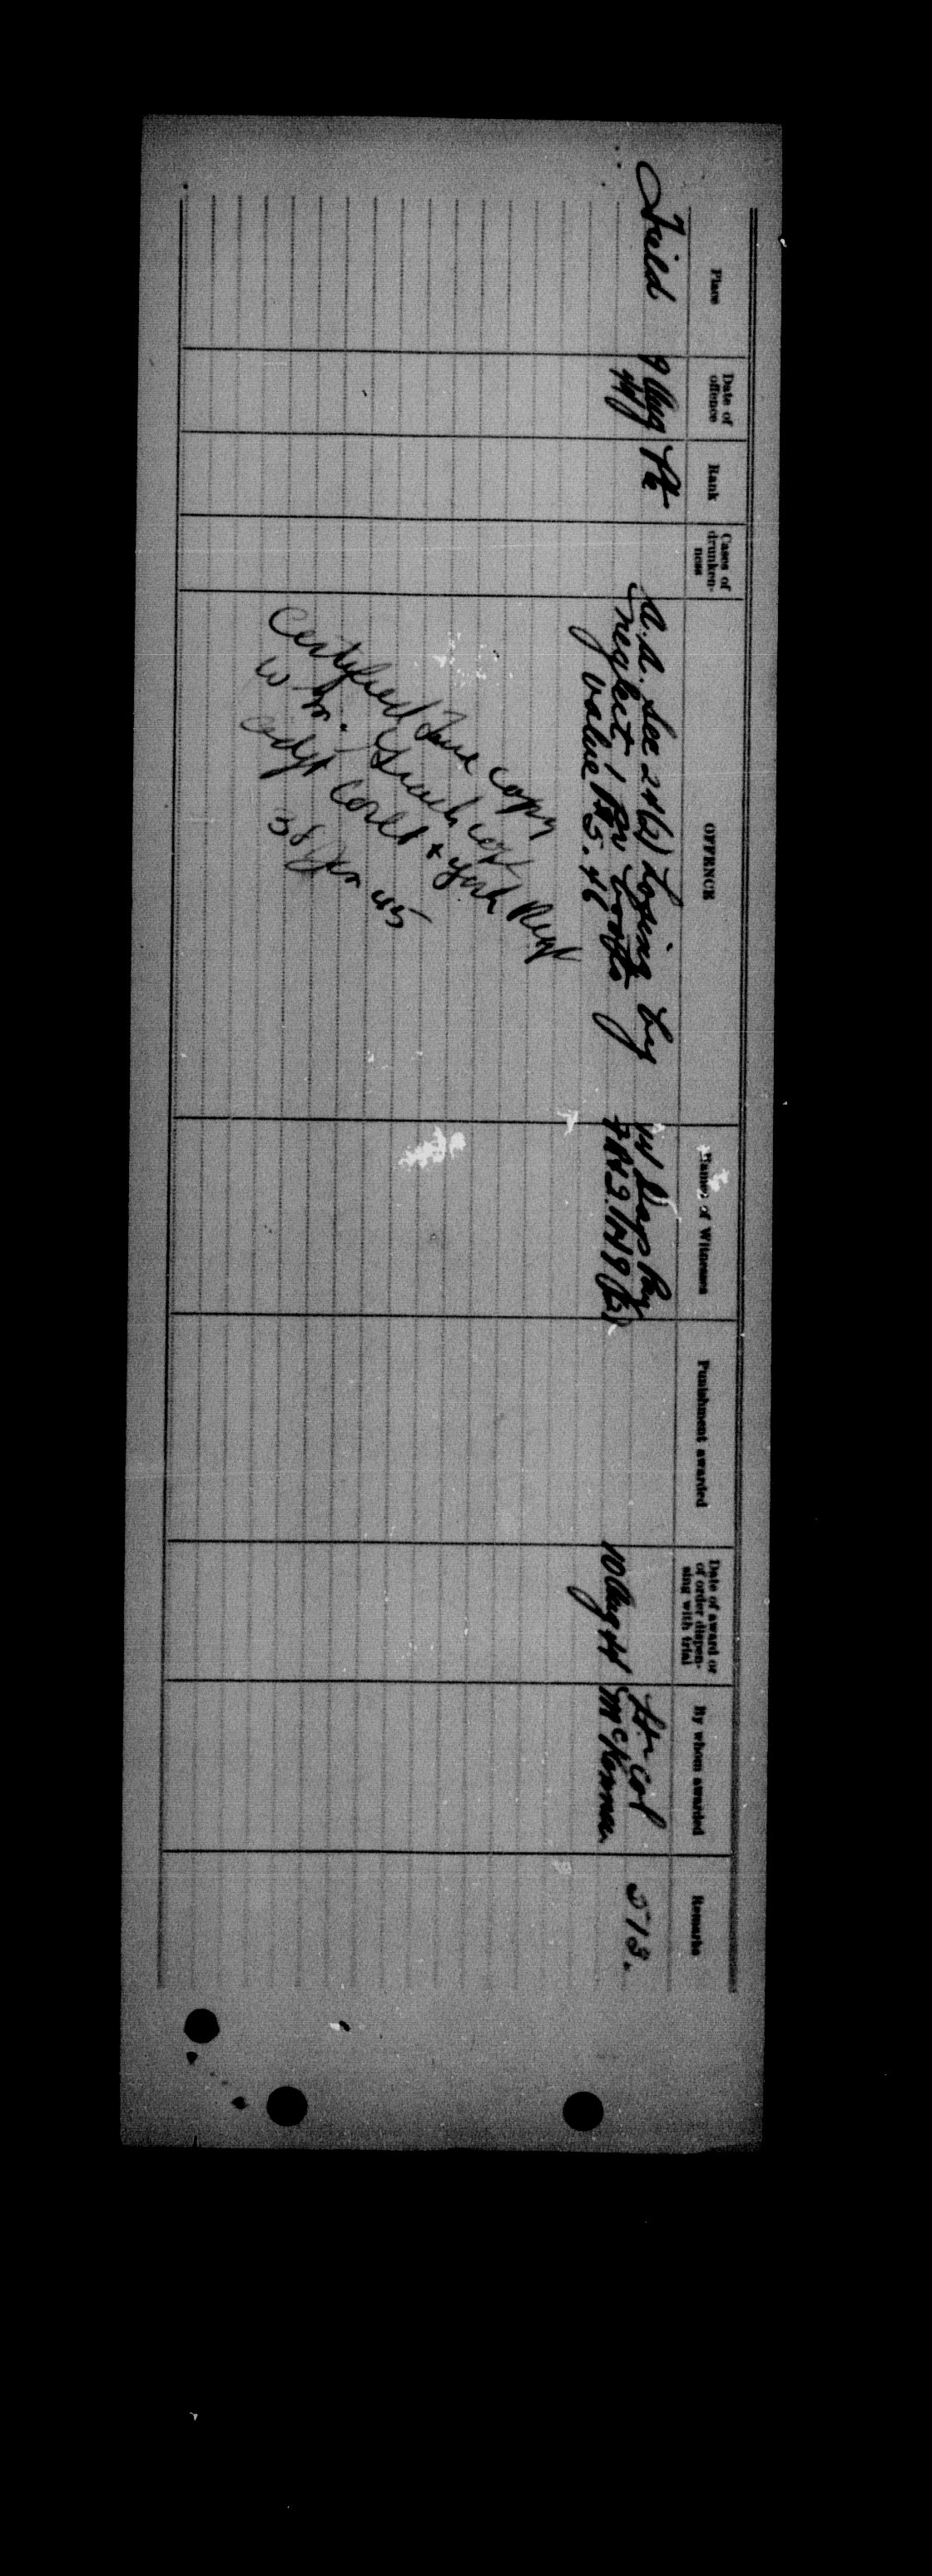 Place
Date of
offence
Rank
Cases of
drunken-
ness
OFFENCE
Names of Witnesses
Punishment awarded
Date of award or
of order dispen-
sing with trial
By whom awarded
Remarks
Field
9 Aug
44
Pte
A.A. Sec 24(2) Losing by
neglect 1 Pr boots
value $5.46
10 Aug 44
Lt-Col
McKenna
Certified True copy
W. M.
Adjt Carlt & York Regt
Jan 45